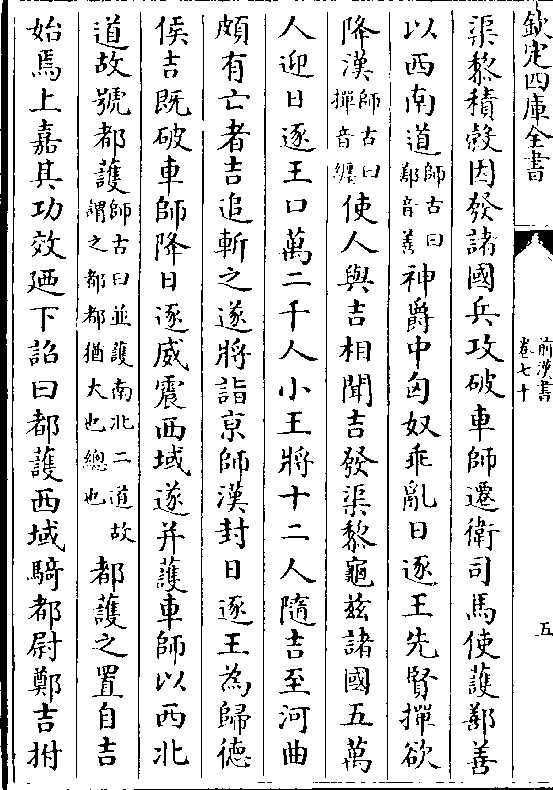 欽定四庫全書
前漢書
卷七十
五
渠黎積穀因發諸國兵攻破車師遷衛司馬使護鄯善
以西南道師古曰鄯音善神爵中匈奴乖亂日逐王先賢撣欲
降漢師古曰撣音纏使人與吉相聞吉發渠黎龜兹諸國五萬
人迎日逐王口萬二千人小王將十二人隨吉至河曲
頗有亡者吉追斬之遂將詣京師漢封日逐王為歸德
侯吉既破車師降日逐威震西域遂并護車師以西北
道故號都護師古曰並護南北二道故謂之都都猶大也總也都護之置自吉
始焉上嘉其功效廼下詔曰都護西域騎都尉鄭吉拊